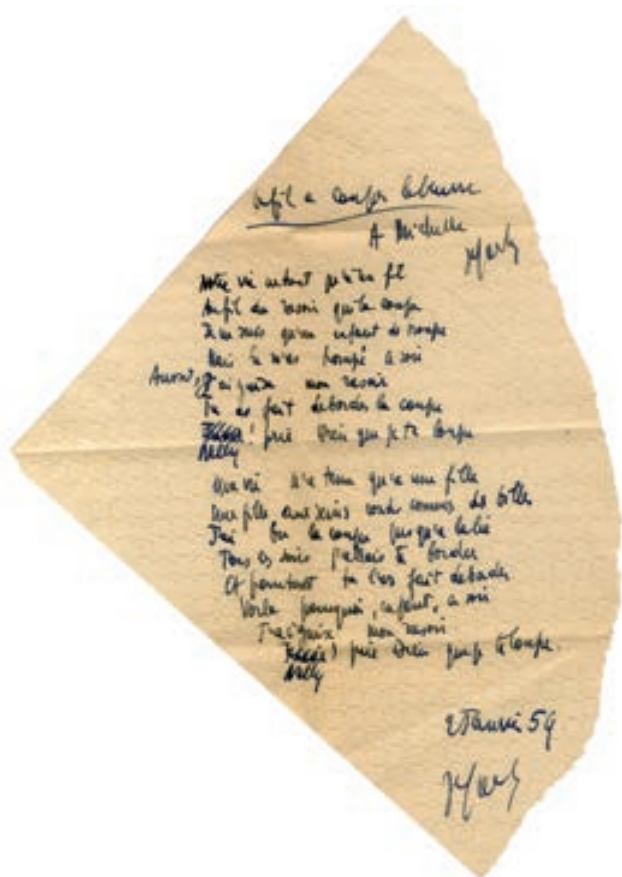 fil a couper le beurre
A Michelle
Notre vie qu'a un fil
Au fil du rasoir qui le coupe
Je ne suis qu'un enfant de troupe
Mais tu m'as trompé ce soir
J'aiguise mon rasoir
Tu as fait deborder la coupe
Nelly ! prie Dieu que je te loupe
Ma vie n'a tenu qu'a une fille
Une fille aux seins ronds comme des billes
J'ai bu la coupe jusqu'a la lie
Tous les soirs j'allais te border
Et pourtant tu l'as fait deborder
Voila pourquoi, enfant, ce soir
J'aiguise mon rasoir
Nelly ! prie Dieu que je te loupe.
2 Janvier 59